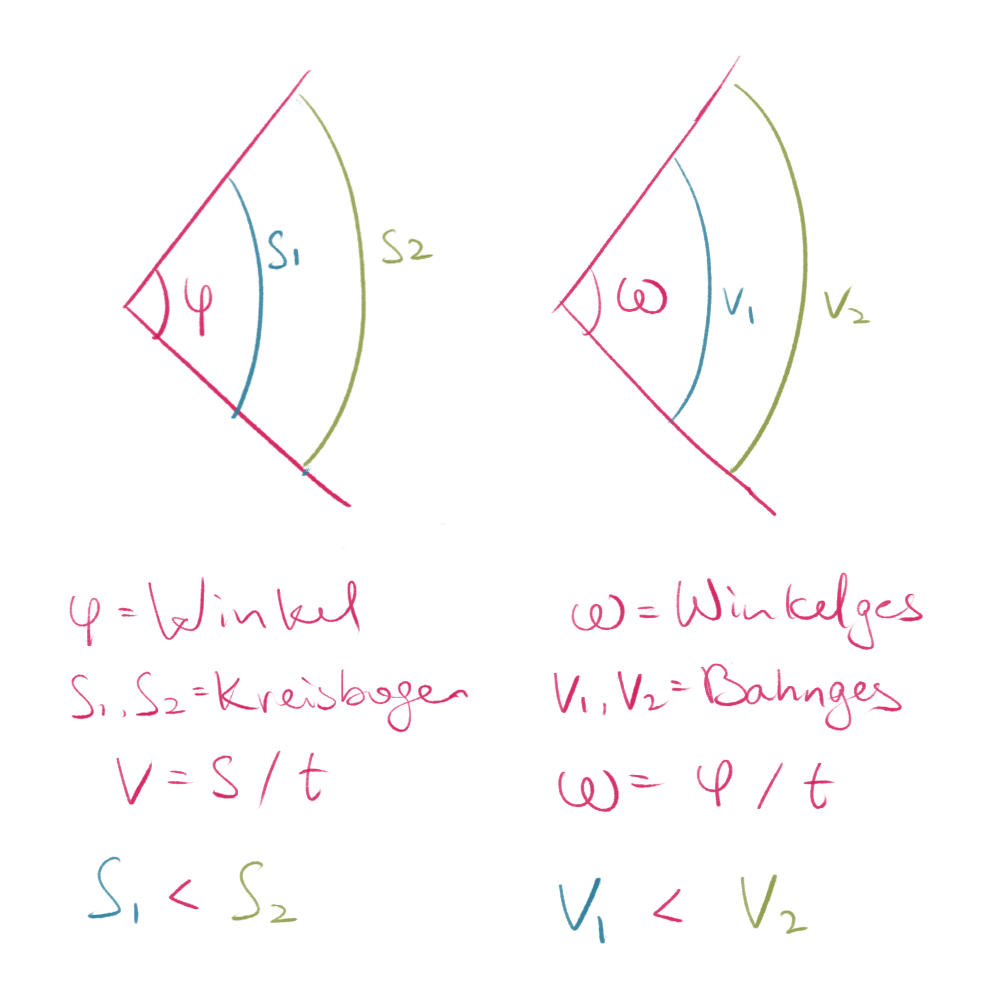 φ
S1
S2
ω
V1
V2
φ = Winkel
S1, S2 = Kreisbogen
V = S / t
S1 < S2
ω = Winkelges
V1, V2 = Bahnges
ω = φ / t
V1 < V2